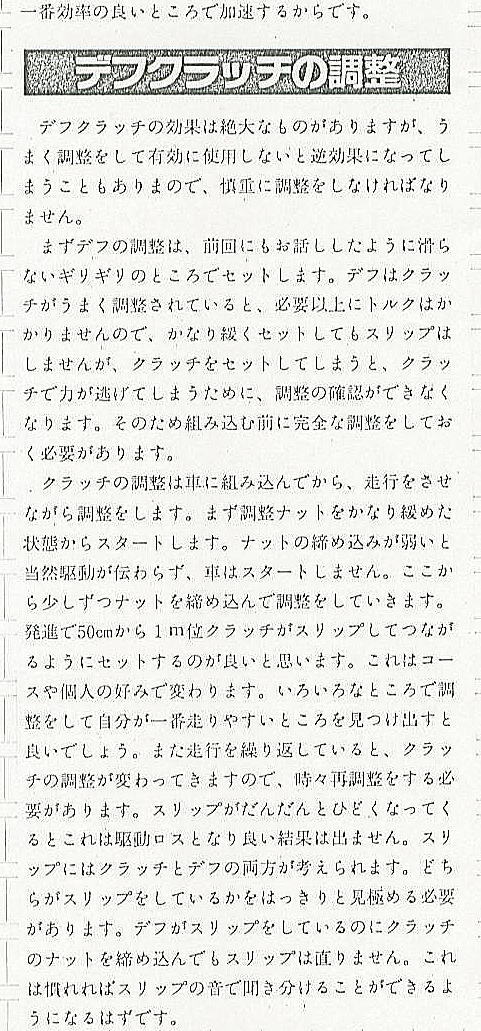 一番効率の良いところで加速するからです。
デフクラッチの調整
デフクラッチの効果は絶大なものがありますが、う
まく調整をして有効に使用しないと逆効果になってし
まうこともありまので、慎重に調整をしなければなり
ません。
まずデフの調整は、前回にもお話ししたように滑ら
ないギリギリのところでセットします。デフはクラッ
チがうまく調整されていると、必要以上にトルクはか
かりませんので、かなり緩くセットしてもスリップは
しませんが、クラッチをセットしてしまうと、クラッ
チで力が逃げてしまうために、調整の確認ができなく
なります。そのため組み込む前に完全な調整をしてお
く必要があります。
クラッチの調整は車に組み込んでから、走行をさせ
ながら調整をします。まず調整ナットをかなり緩めた
状態からスタートします。ナットの締め込みが弱いと
当然駆動が伝わらず、車はスタートしません。ここか
ら少しずつナットを締め込んで調整をしていきます。
発進で50cmから1m位クラッチがスリップしてつなが
るようにセットするのが良いと思います。これはコー
スや個人の好みで変わります。いろいろなところで調
整をして自分が一番走りやすいところを見つけ出すと
良いでしょう。また走行を繰り返していると、クラッ
チの調整が変わってきますので、時々再調整をする必
要があります。スリップがだんだんとひどくなってく
るとこれは駆動ロスとなり良い結果は出ません。スリ
ップにはクラッチとデフの両方が考えられます。どち
らがスリップをしているかをはっきりと見極める必要
があります。デフがスリップをしているのにクラッチ
のナットを締め込んでもスリップは直りません。これ
は慣れればスリップの音で聞き分けることができるよ
うになるはずです。